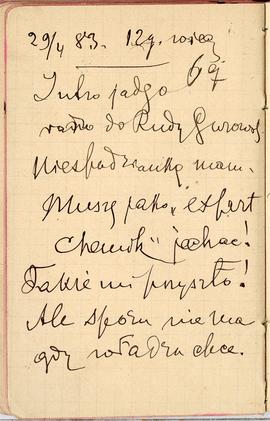 29/4 83. 12g.
6g
Jutro jadę o
rano do Rudy Guzowsk
Niespodziankę mam.
Muszę jako „expert
chemik" jechać!
Takie mi przyszło!
Ale sporu nie ma
gdy władza chce.